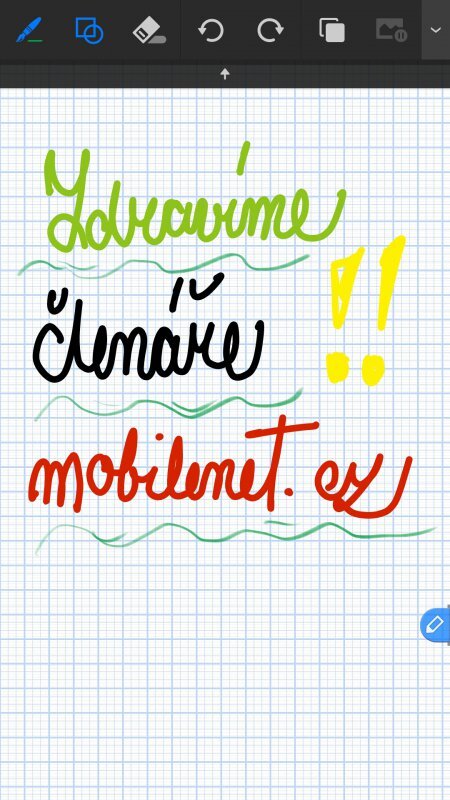 Zdravíme
čtenáře !!
mobilenet.cz